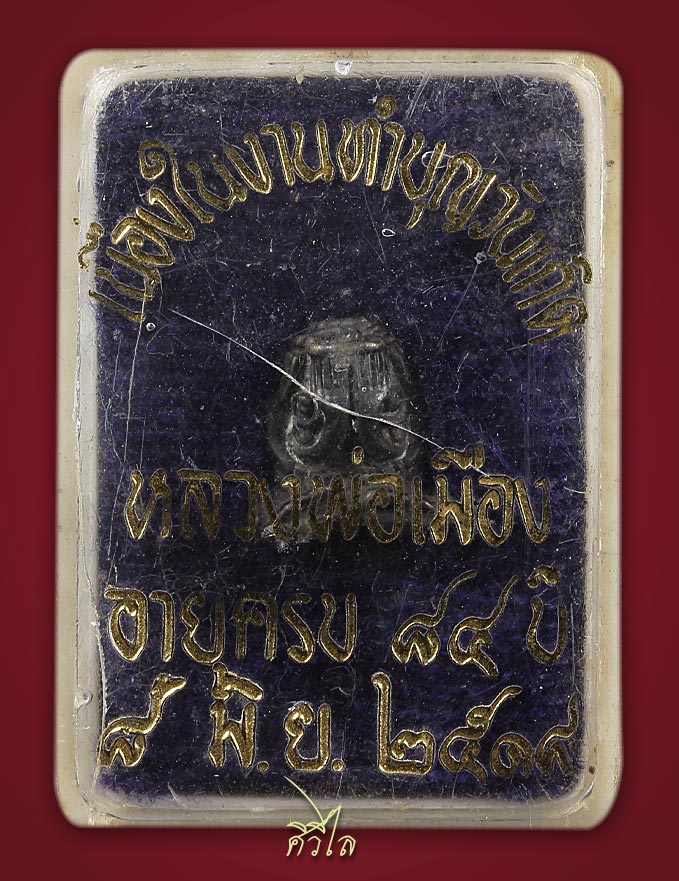 เนื่องในงานทำบุญวันเกิด
หลวงพ่อเมือง
อายุครบ ๘๔ ปี
๘ มิ.ย. ๒๕๑๙
ศิริไล